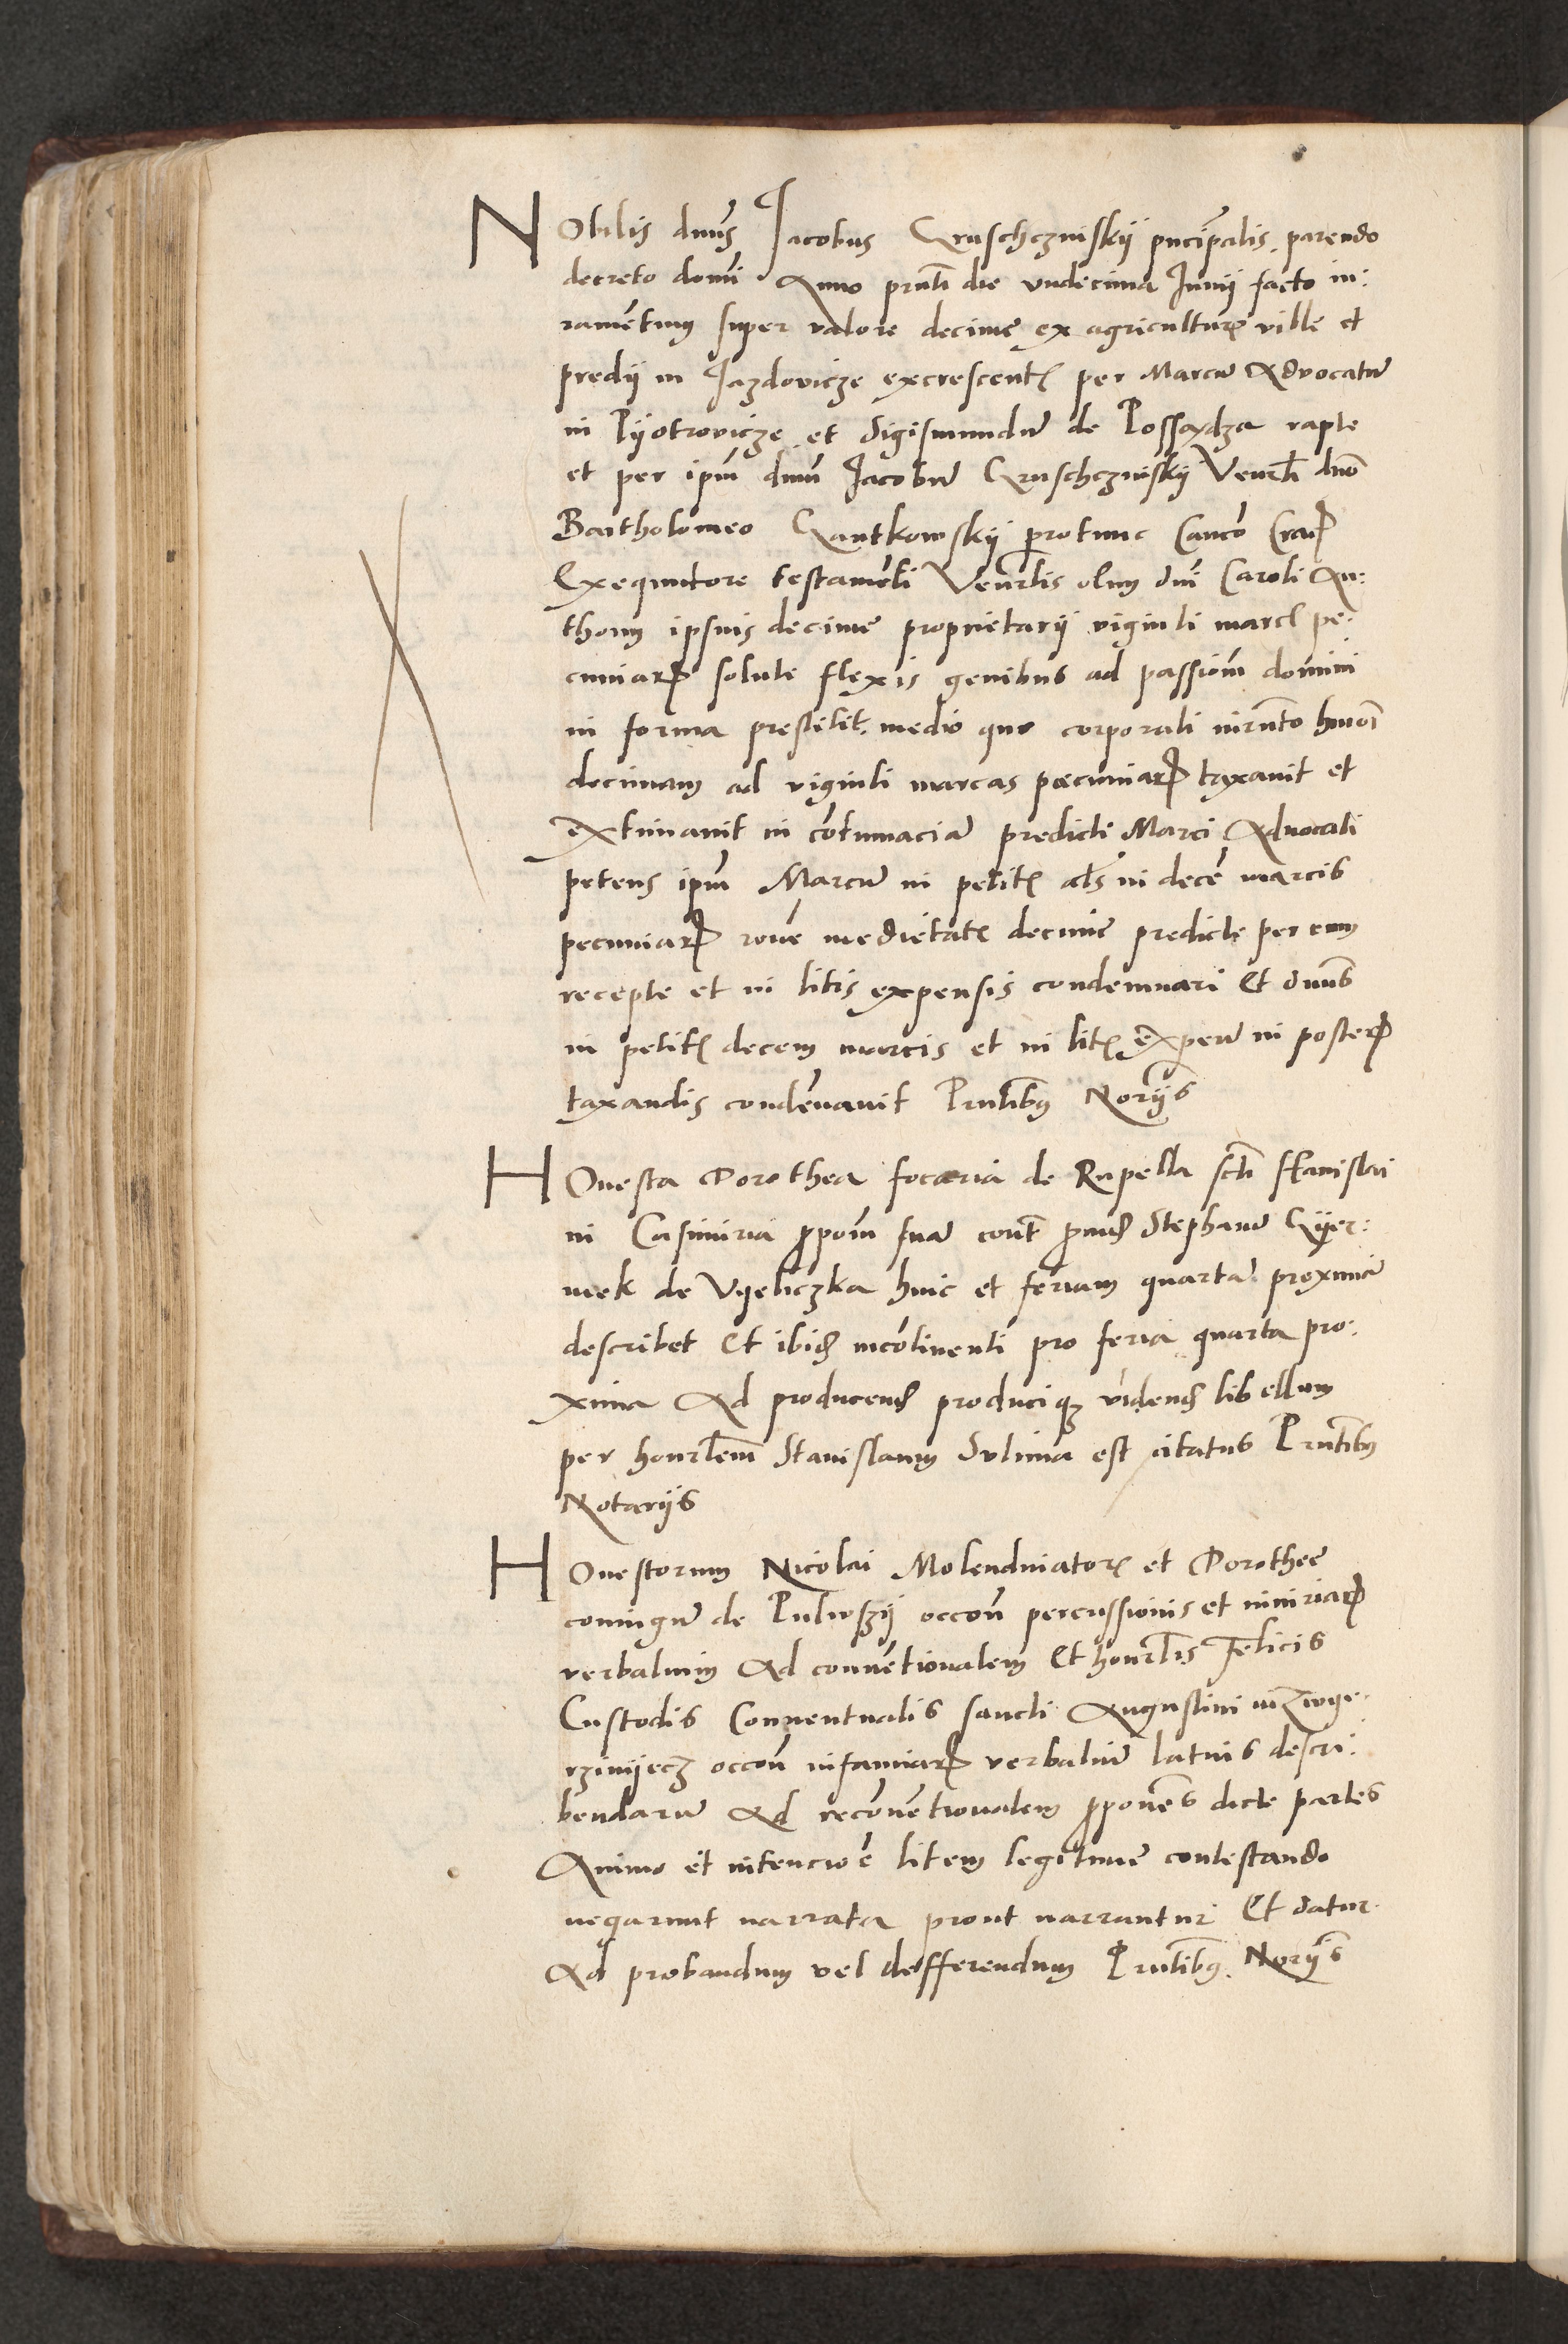 NObilis dnus Jacobus Gruschczinskij pncipalis parendo
decreto domi Anno pnti die undecima Junij facto iu:
ramentum super valore decime ex agriculture ville et
predij in Jazdovicze excrescent per Marcu Advocatu
in Pijotrovicze et Sigismundu de Possadza rapte
et per ipm dnm Jacobu Gruschczinskij Venerli dno
Bartholomeo Gantkowskij protunc Canco Crac
Exequutore testamenti Venerlis olim dni Caroli An:
thonij ipsius decime proprietarij viginti marc pe:
cuniar solute flexis genibus ad passiom domini
in forma prestitit medio quo corporali iurnto hmoi
decimam ad viginti marcas pecuniar taxavit et
extimavit in cotumacia predicti Marci Advocati
petens ipm Marcu in petit als in dece marcis
pecuniar rone medietat decime predicte per eum
recepte et in litis expensis condemnari Et dnus
in petit decem marcis et in lit expen in poster
taxandis condenavit Pntibus Norijs
HOnesta Dorothea focaria de Rupella scti Stanislai
in Casimiria ppom sua cont provid Stephanu Gijer:
mek de Vyeliczka hinc et feriam quarta proxima
describet Et ibid incotinenti pro feria quarta pro:
xima Ad producend produciq videnḍ libellum
per honorlem Stanislaum Sulima est citatus Pntibus
Notarijs
HOnestorum Nicolai Molendinator et Dorothee
coniugu de occon percussionis et iniuriar
verbalium Ad conventionalem Et honorlis Felicis
Custodis Conventualis sancti Augustini in
occon infamiar verbaliu latius descri:
bendaru Ad reconventionalem pponens dicte partes
Animo et intencioe litem legitime contestando
negarunt narrata prout narrantur Et datur
Ad probandum vel defferendum Pntibus Norijs